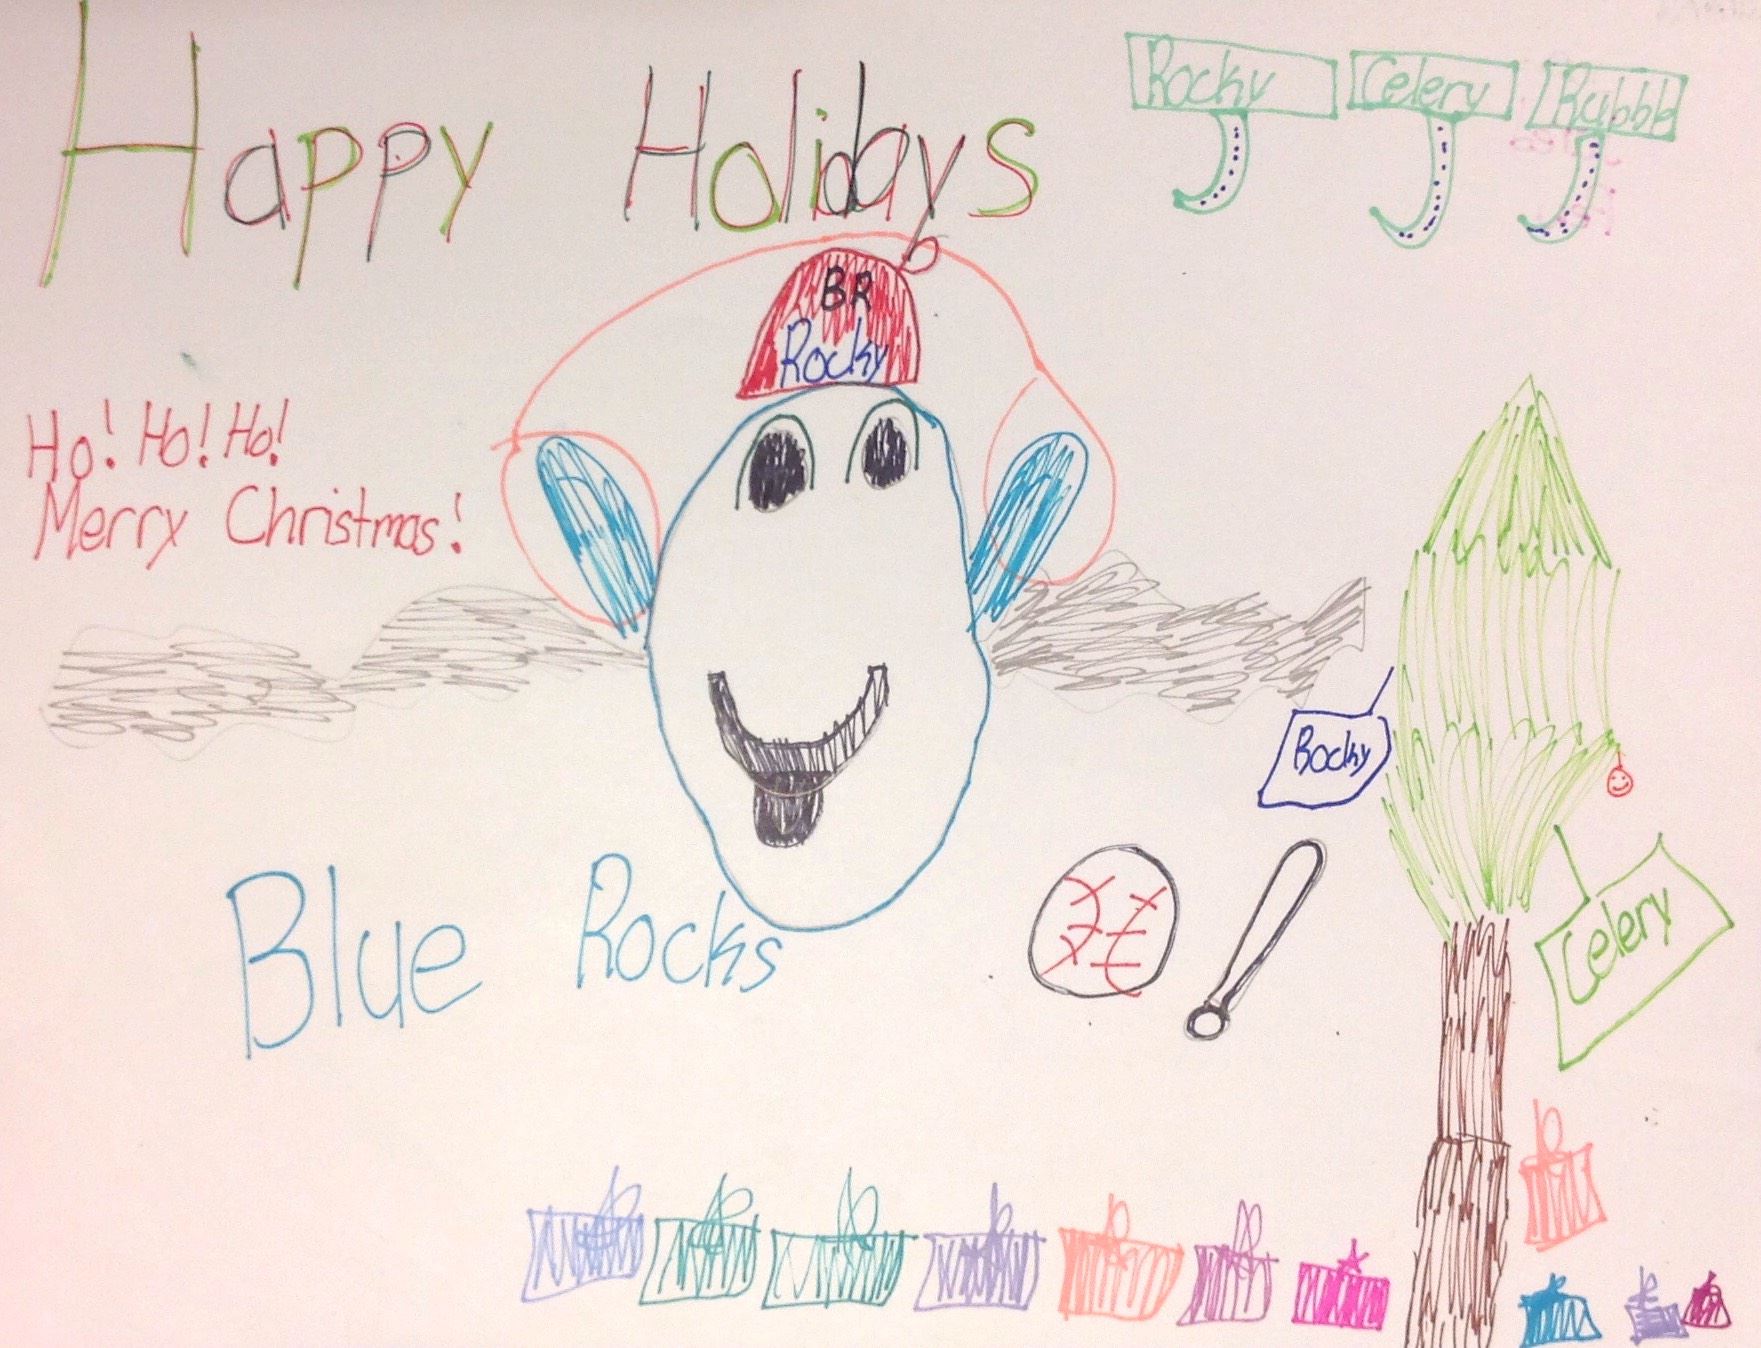 Happy Holidays
Rocky
Celery
Rubbb
BR
Rocky
Ho! Ho! Ho!
Merry Christmas!
Rocky
Celery
Blue Rocks